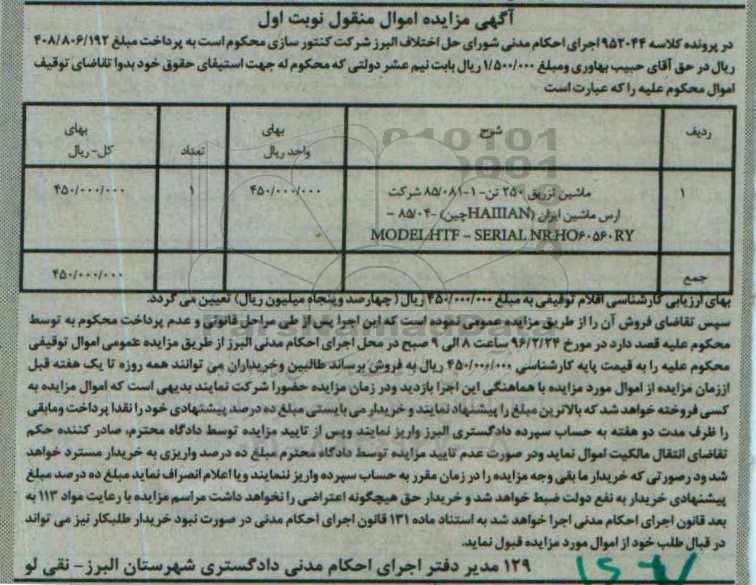 آگهی مزایده اموال منقول نوبت اول
در پرونده کلاسه ۹۵۲۰۴۴ اجرای احکام مدنی شورای حل اختلاف البرز شرکت کنتور سازی محکوم است به پرداخت مبلغ ۴۰۸/۸۰۶/۱۹۲
ریال در حق آقای حبیب بهاوری ومبلغ ۱/۵۰۰/۰۰۰ ریال بابت نیم عشر دولتی که محکوم له جهت استیفای حقوق خود بدوا تقاضای توقیف
اموال محکوم علیه را که عبارت است
ردیف شرح بهای واحد ریال تعداد بهای کل- ریال
۱ ماشین تزریق ۲۵۰ تن- ۱-۸۵/۰۸۱ شرکت ۴۵۰/۰۰۰/۰۰۰ ۱ ۴۵۰/۰۰۰/۰۰۰
ارس ماشین ایران (HAIIIANچین) -۸۵/۰۴ -
MODEL:HTF - SERIAL NR:HO۶۰۵۶۰RY
جمع ۴۵۰/۰۰۰/۰۰۰
بهای ارزیابی کارشناسی اقلام توقیفی به مبلغ ۴۵۰/۰۰۰/۰۰۰ ریال ( چهارصد وپنجاه میلیون ریال) تعیین می گردد.
سپس تقاضای فروش آن را از طریق مزایده عمومی نموده است که این اجرا پس از طی مراحل قانونی و عدم پرداخت محکوم به توسط
محکوم علیه قصد دارد در مورخ ۹۶/۲/۲۴ ساعت ۸ الی ۹ صبح در محل اجرای احکام مدنی البرز از طریق مزایده عمومی اموال توقیفی
محکوم علیه را به قیمت پایه کارشناسی ۴۵۰/۰۰۰/۰۰۰ ریال به فروش برساند طالبین وخریداران می توانند همه روزه تا یک هفته قبل
اززمان مزایده از اموال مورد مزایده با هماهنگی این اجرا بازدید ودر زمان مزایده حضورا شرکت نمایند بدیهی است که اموال مزایده به
کسی فروخته خواهد شد که بالاترین مبلغ را پیشنهاد نمایند و خریدار می بایستی مبلغ ده درصد پیشنهادی خود را نقدا پرداخت ومابقی
را ظرف مدت دو هفته به حساب سپرده دادگستری البرز واریز نمایند وپس از تایید مزایده توسط دادگاه محترم، صادر کننده حکم
تقاضای انتقال مالکیت اموال نماید ودر صورت عدم تایید مزایده توسط دادگاه محترم مبلغ ده درصد واریزی به خریدار مسترد خواهد
شد ود رصورتی که خریدار ما بقی وجه مزایده را در زمان مقرر به حساب سپرده واریز ننمایند ویا اعلام انصراف نماید مبلغ ده درصد مبلغ
پیشنهادی خریدار به نفع دولت ضبط خواهد شد و خریدار حق هیچگونه اعتراضی را نخواهد داشت مراسم مزایده با رعایت مواد ۱۱۳ به
بعد قانون اجرای احکام مدنی اجرا خواهد شد به استناد ماده ۱۳۱ قانون اجرای احکام مدنی در صورت نبود خریدار طلبکار نیز می تواند
در قبال طلب خود از اموال مورد مزایده قبول نماید.
۱۲۹ مدیر دفتر اجرای احکام مدنی دادگستری شهرستان البرز- نقی لو